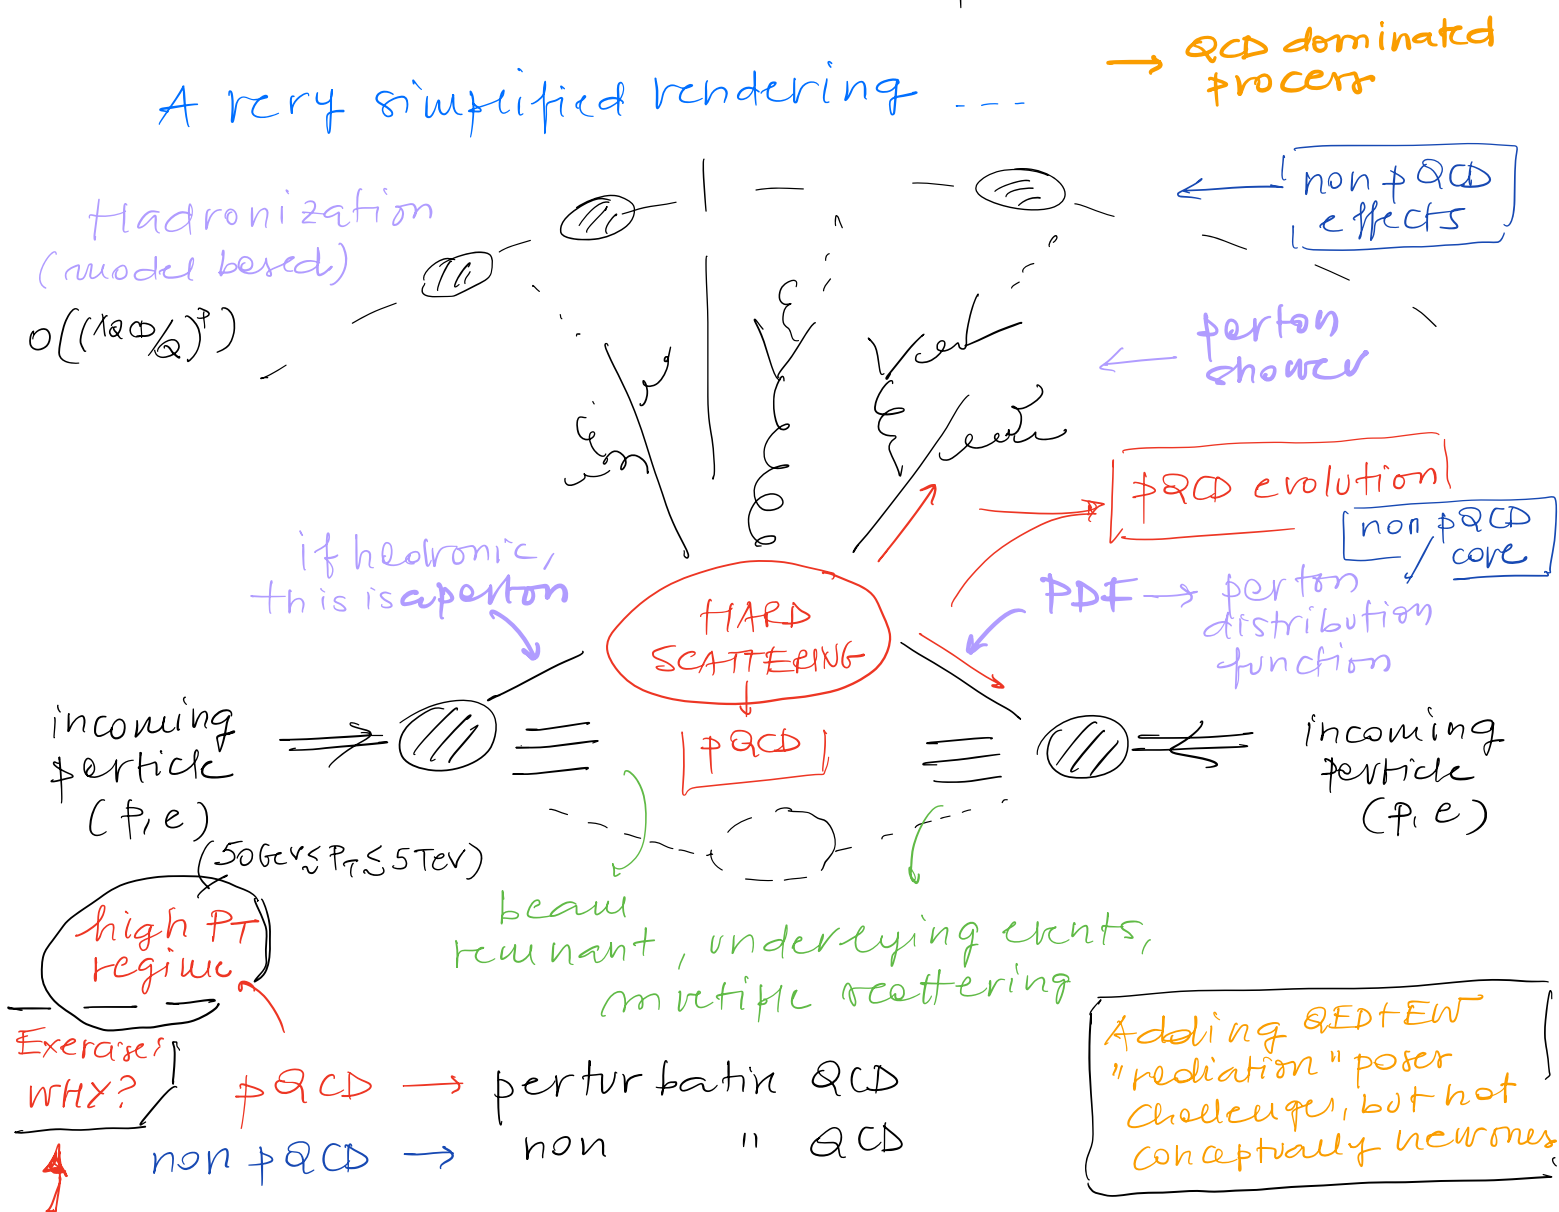 A very simplified rendering ---
→ QCD dominated
process
Hadronization
(model based)
O((ΛQCD/Q)^p)
non pQCD
effects
parton
shower
pQCD evolution
non pQCD
core
if hadronic,
this is a parton
PDF → parton
distribution
function
HARD
SCATTERING
pQCD
incoming
particle
(p, e)
incoming
particle
(p, e)
(50 GeV ≲ PT ≲ 5 TeV)
high PT
regime
beam
remnant, underlying events,
multiple scattering
Exercise:
WHY?
pQCD → perturbative QCD
non pQCD → non " QCD
Adding QED+EW
"radiation" poses
challenges, but not
conceptually new ones